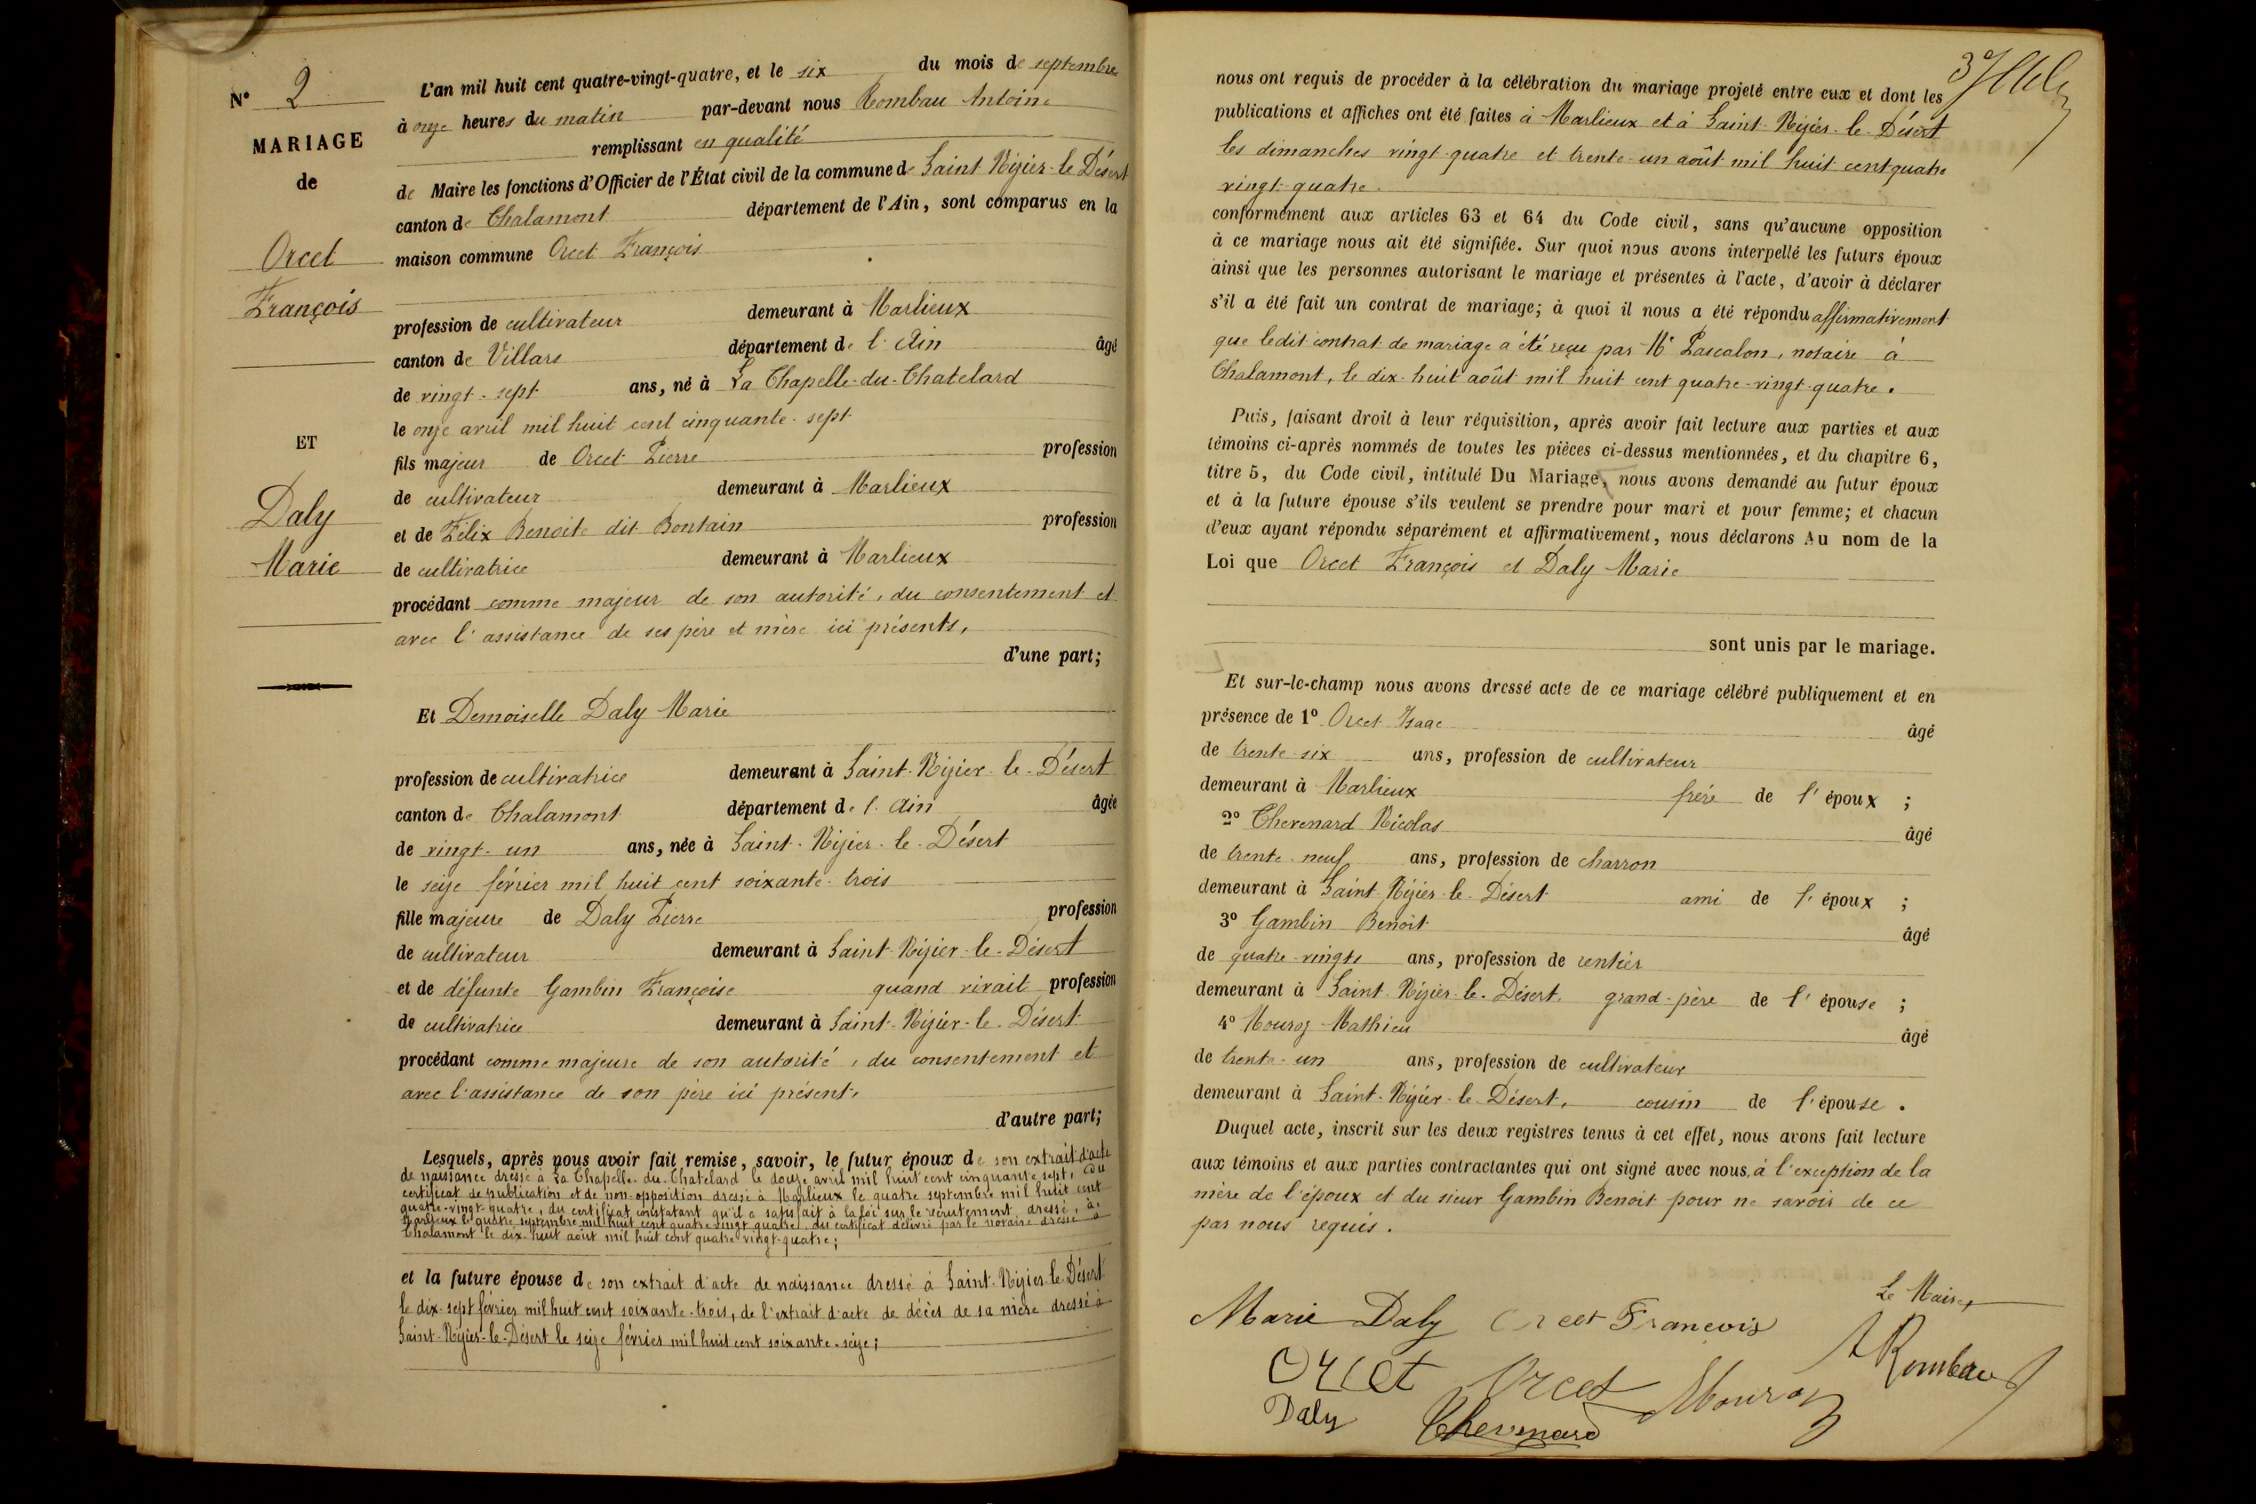 N° 2
MARIAGE
de
Orcet
François
ET
Daly
Marie
L'an mil huit cent quatre-vingt-quatre, et le six du mois de septembre
à onze heures du matin par-devant nous Rombau Antoine
remplissant en qualité
de Maire les fonctions d'Officier de l'État civil de la commune de Saint-Nizier-le-Désert
canton de Chalamont département de l'Ain, sont comparus en la
maison commune Orcet François
profession de cultivateur demeurant à Marlieux
canton de Villars département de l'Ain âgé
de vingt-sept ans, né à La Chapelle-du-Chatelard
le onze avril mil huit cent cinquante-sept
fils majeur de Orcet Pierre profession
de cultivateur demeurant à Marlieux
et de Félix Benoite dit Bontain profession
de cultivatrice demeurant à Marlieux
procédant comme majeur de son autorité, du consentement et
avec l'assistance de ses père et mère ici présents,
d'une part;
Et Demoiselle Daly Marie
profession de cultivatrice demeurant à Saint-Nizier-le-Désert
canton de Chalamont département de l'Ain âgée
de vingt-un ans, née à Saint-Nizier-le-Désert
le seize février mil huit cent soixante-trois
fille majeure de Daly Pierre profession
de cultivateur demeurant à Saint-Nizier-le-Désert
et de défunte Gambin Françoise quand vivait profession
de cultivatrice demeurant à Saint-Nizier-le-Désert
procédant comme majeure de son autorité, du consentement et
avec l'assistance de son père ici présent,
d'autre part;
Lesquels, après nous avoir fait remise, savoir, le futur époux de son extrait d'acte
de naissance dressé à La Chapelle-du-Chatelard le douze avril mil huit cent cinquante-sept, du
certificat de publication et de non-opposition dressé à Marlieux le quatre septembre mil huit cent
quatre-vingt-quatre, du certificat constatant qu'il a satisfait à la loi sur le recrutement, dressé, à
Marlieux le quatre septembre mil huit cent quatre vingt quatre, du certificat délivré par le notaire dressé à
Chalamont le dix-huit août mil huit cent quatre-vingt-quatre;
et la future épouse de son extrait d'acte de naissance dressé à Saint-Nizier-le-Désert
le dix-sept février mil huit cent soixante-trois, de l'extrait d'acte de décès de sa mère dressé à
Saint-Nizier-le-Désert le seize février mil huit cent soixante-seize;
nous ont requis de procéder à la célébration du mariage projeté entre eux et dont les
publications et affiches ont été faites à Marlieux et à Saint-Nizier-le-Désert
les dimanches vingt-quatre et trente-un août mil huit cent quatre
vingt-quatre.
conformément aux articles 63 et 64 du Code civil, sans qu'aucune opposition
à ce mariage nous ait été signifiée. Sur quoi nous avons interpellé les futurs époux
ainsi que les personnes autorisant le mariage et présentes à l'acte, d'avoir à déclarer
s'il a été fait un contrat de mariage; à quoi il nous a été répondu affirmativement
que ledit contrat de mariage a été reçu par Me Pascalon, notaire à
Chalamont, le dix-huit août mil huit cent quatre-vingt-quatre.
Puis, faisant droit à leur réquisition, après avoir fait lecture aux parties et aux
témoins ci-après nommés de toutes les pièces ci-dessus mentionnées, et du chapitre 6,
titre 5, du Code civil, intitulé Du Mariage, nous avons demandé au futur époux
et à la future épouse s'ils veulent se prendre pour mari et pour femme; et chacun
d'eux ayant répondu séparément et affirmativement, nous déclarons Au nom de la
Loi que Orcet François et Daly Marie
sont unis par le mariage.
Et sur-le-champ nous avons dressé acte de ce mariage célébré publiquement et en
présence de 1° Orcet Isaac âgé
de trente-six ans, profession de cultivateur
demeurant à Marlieux frère de l'époux ;
2° Chevenard Nicolas âgé
de trente-neuf ans, profession de charron
demeurant à Saint-Nizier-le-Désert ami de l'époux ;
3° Gambin Benoit âgé
de quatre-vingts ans, profession de rentier
demeurant à Saint-Nizier-le-Désert grand-père de l'épouse ;
4° Mouroz Mathieu âgé
de trente-un ans, profession de cultivateur
demeurant à Saint-Nizier-le-Désert, cousin de l'épouse.
Duquel acte, inscrit sur les deux registres tenus à cet effet, nous avons fait lecture
aux témoins et aux parties contractantes qui ont signé avec nous, à l'exception de la
mère de l'époux et du sieur Gambin Benoit pour ne savoir de ce
par nous requis.
Le Maire,
Marie Daly Orcet François
A Rombau
Orcet Orcet Mouroz
Daly Chevenard